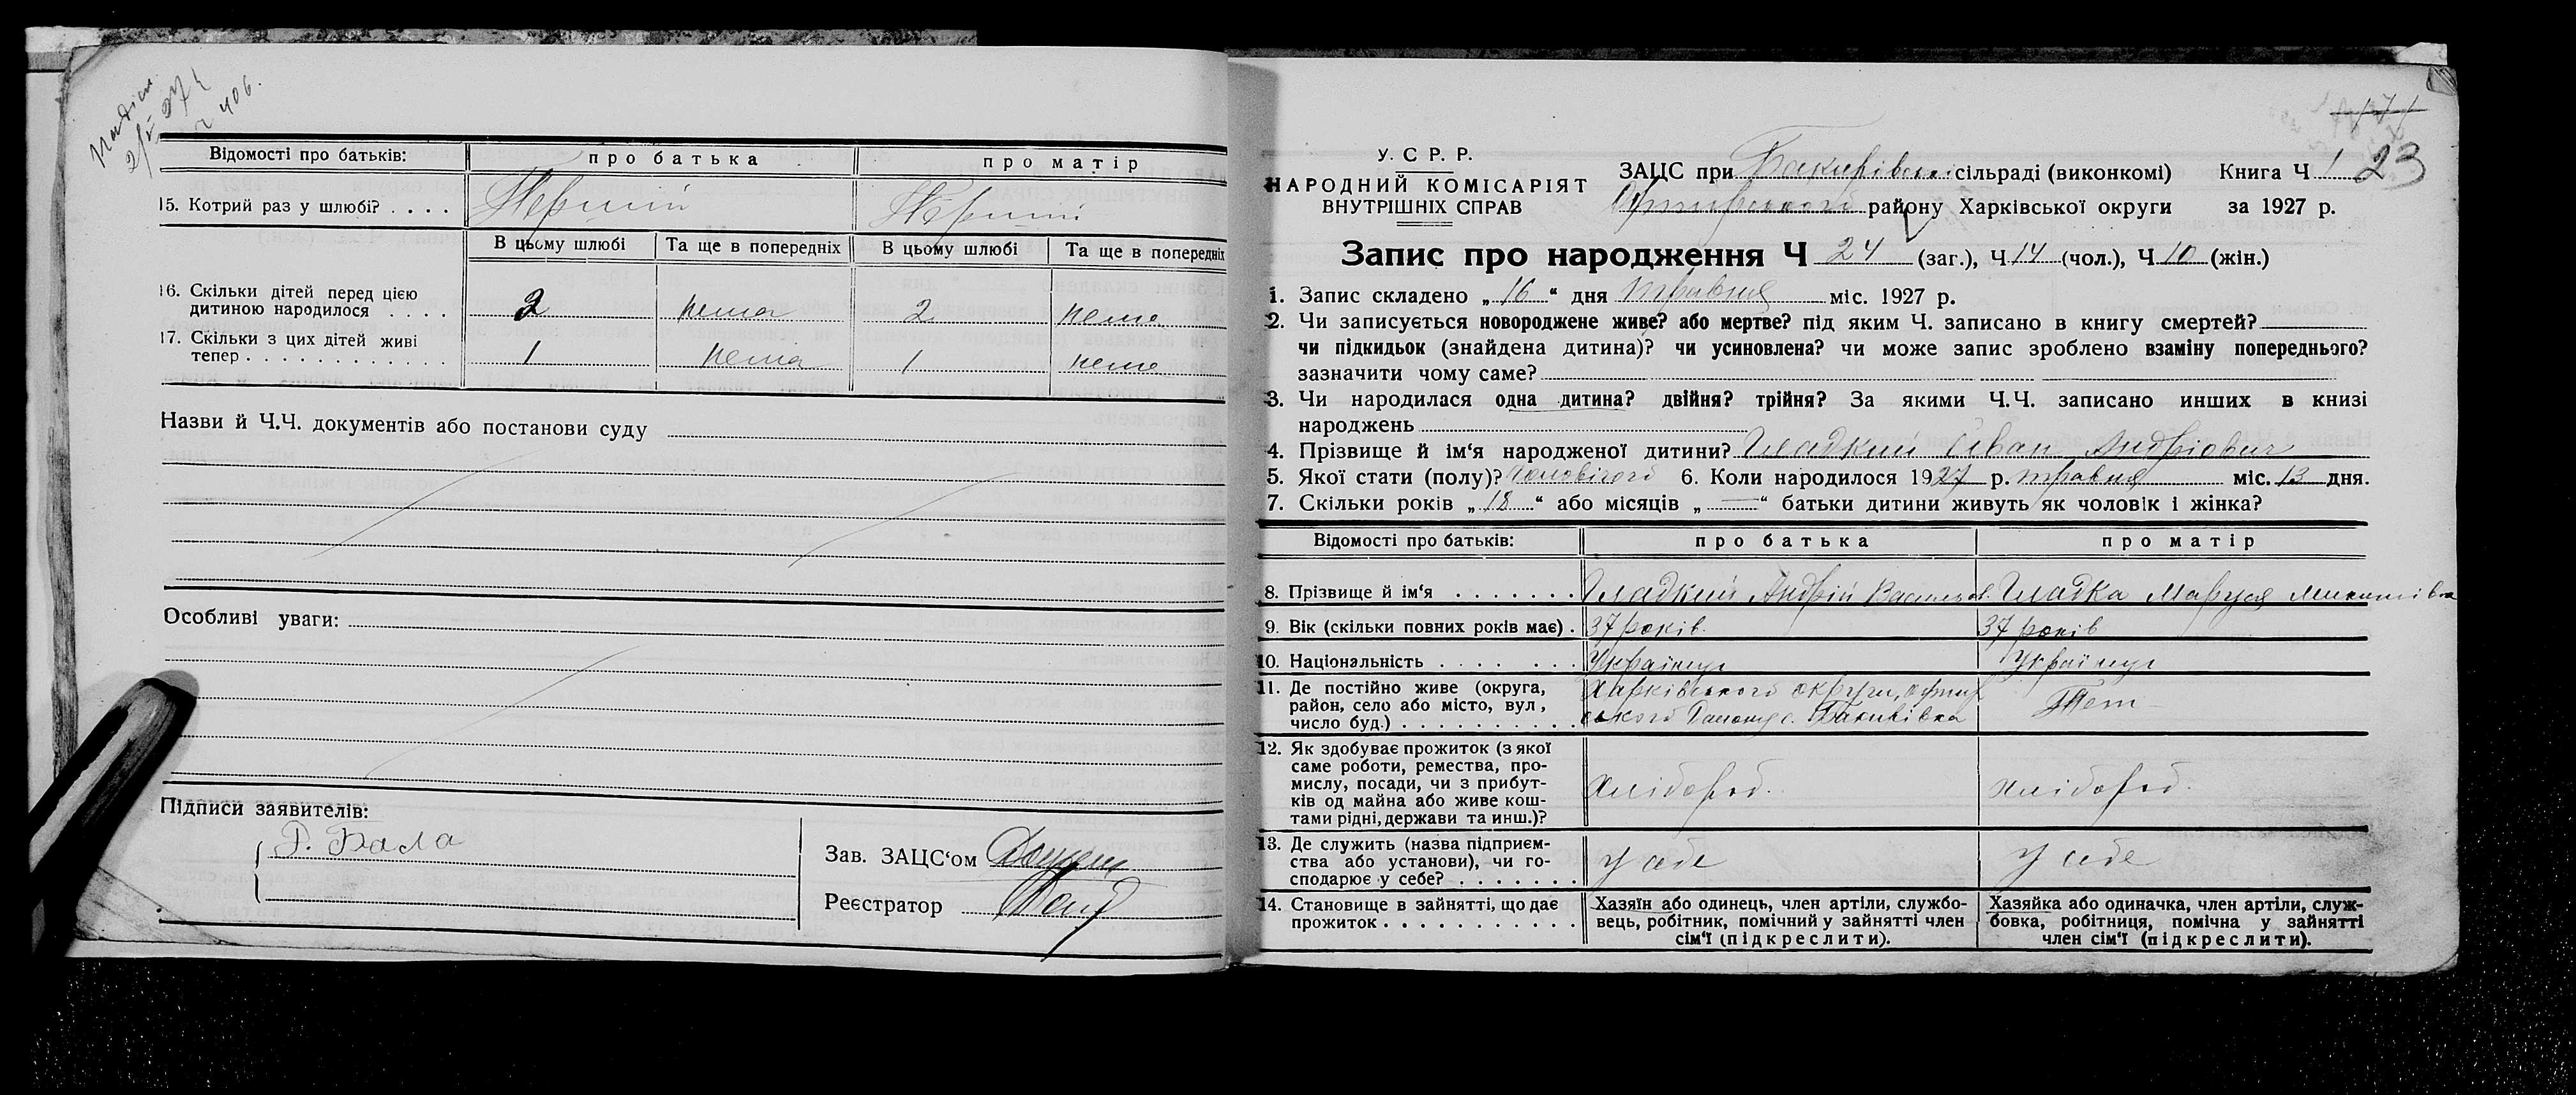 406.
Відомості про батьків: про батька про матір
15. Котрий раз у шлюбі? . . . . Перший Перший
В цьому шлюбі Та ще в попередніх В цьому шлюбі Та ще в попередніх
16. Скільки дітей перед цією
дитиною народилося . . . . 2 нема 2 нема
17. Скільки з цих дітей живі
тепер . . . . . . . . . . . . 1 нема 1 нема
Назви й Ч.Ч. документів або постанови суду
Особливі уваги:
Підписи заявителів:
Г. Бала
Зав. ЗАЦС'ом
Реєстратор
У. С Р. Р.
НАРОДНИЙ КОМІСАРІЯТ
ВНУТРІШНІХ СПРАВ
23
ЗАЦС при Бакирівській сільраді (виконкомі) Книга Ч 1
району Харківської округи за 1927 р.
Запис про народження Ч 24 (заг.), Ч 14 (чол.), Ч 10 (жін.)
1. Запис складено „ 16 “ дня травня міс. 1927 р.
2. Чи записується новороджене живе? або мертве? під яким Ч. записано в книгу смертей?
чи підкидьок (знайдена дитина)? чи усиновлена? чи може запис зроблено взаміну попереднього?
зазначити чому саме?
3. Чи народилася одна дитина? двійня? трійня? За якими Ч.Ч. записано инших в книзі
народжень
4. Прізвище й ім'я народженої дитини? Гладкий Іван Андріович
5. Якої стати (полу)? чоловічого 6. Коли народилося 1927 р. травня міс. 13 дня.
7. Скільки років „ 18 “ або місяців „ — “ батьки дитини живуть як чоловік і жінка?
Відомості про батьків: про батька про матір
8. Прізвище й ім'я . . . . . . . Гладкий Андрій Васильов. Гладка Маруся Микитівна
9. Вік (скільки повних років має) . 37 років. 37 років
10. Національність . . . . . . . Українця Українця
11. Де постійно живе (округа,
район, село або місто, вул,
число буд.) . . . . . . . . . . Харківського округи, Охтир
ського району с. Бакирівка Теж
12. Як здобуває прожиток (з якої
саме роботи, ремества, про-
мислу, посади, чи з прибут-
ків од майна або живе кош-
тами рідні, держави та инш.)? хлібороб. хлібороб.
13. Де служить (назва підприєм-
ства або установи), чи го-
сподарює у себе? . . . . . . . у себе у себе
14. Становище в зайнятті, що дає
прожиток . . . . . . . . . . .
Хазяїн або одинець, член артіли, службо-
вець, робітник, помічний у зайнятті член
сім'ї (підкреслити).
Хазяйка або одиначка, член артіли, служ-
бовка, робітниця, помічна у зайнятті
член сім'ї (підкреслити).